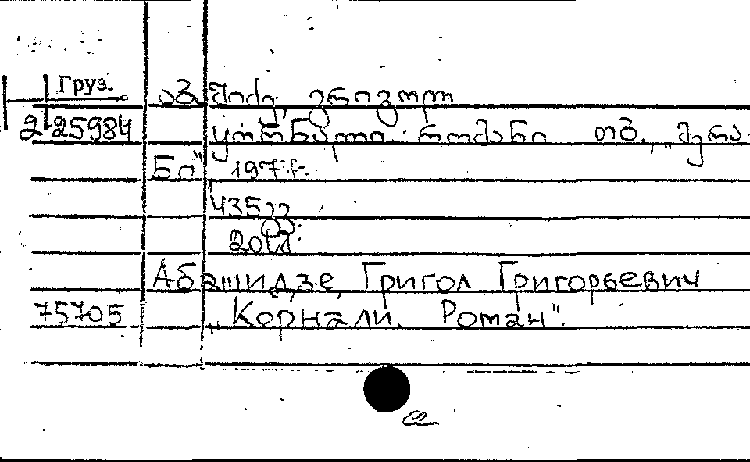 Груз.
აბაშიძე, გრიგოლ
2 25984 ყორნალი. რომანი თბ., „მერა
ნი“ 197
435გვ
20სმ.
Абашидзе, Григол Григорьевич
75705 „Корнали. Роман".